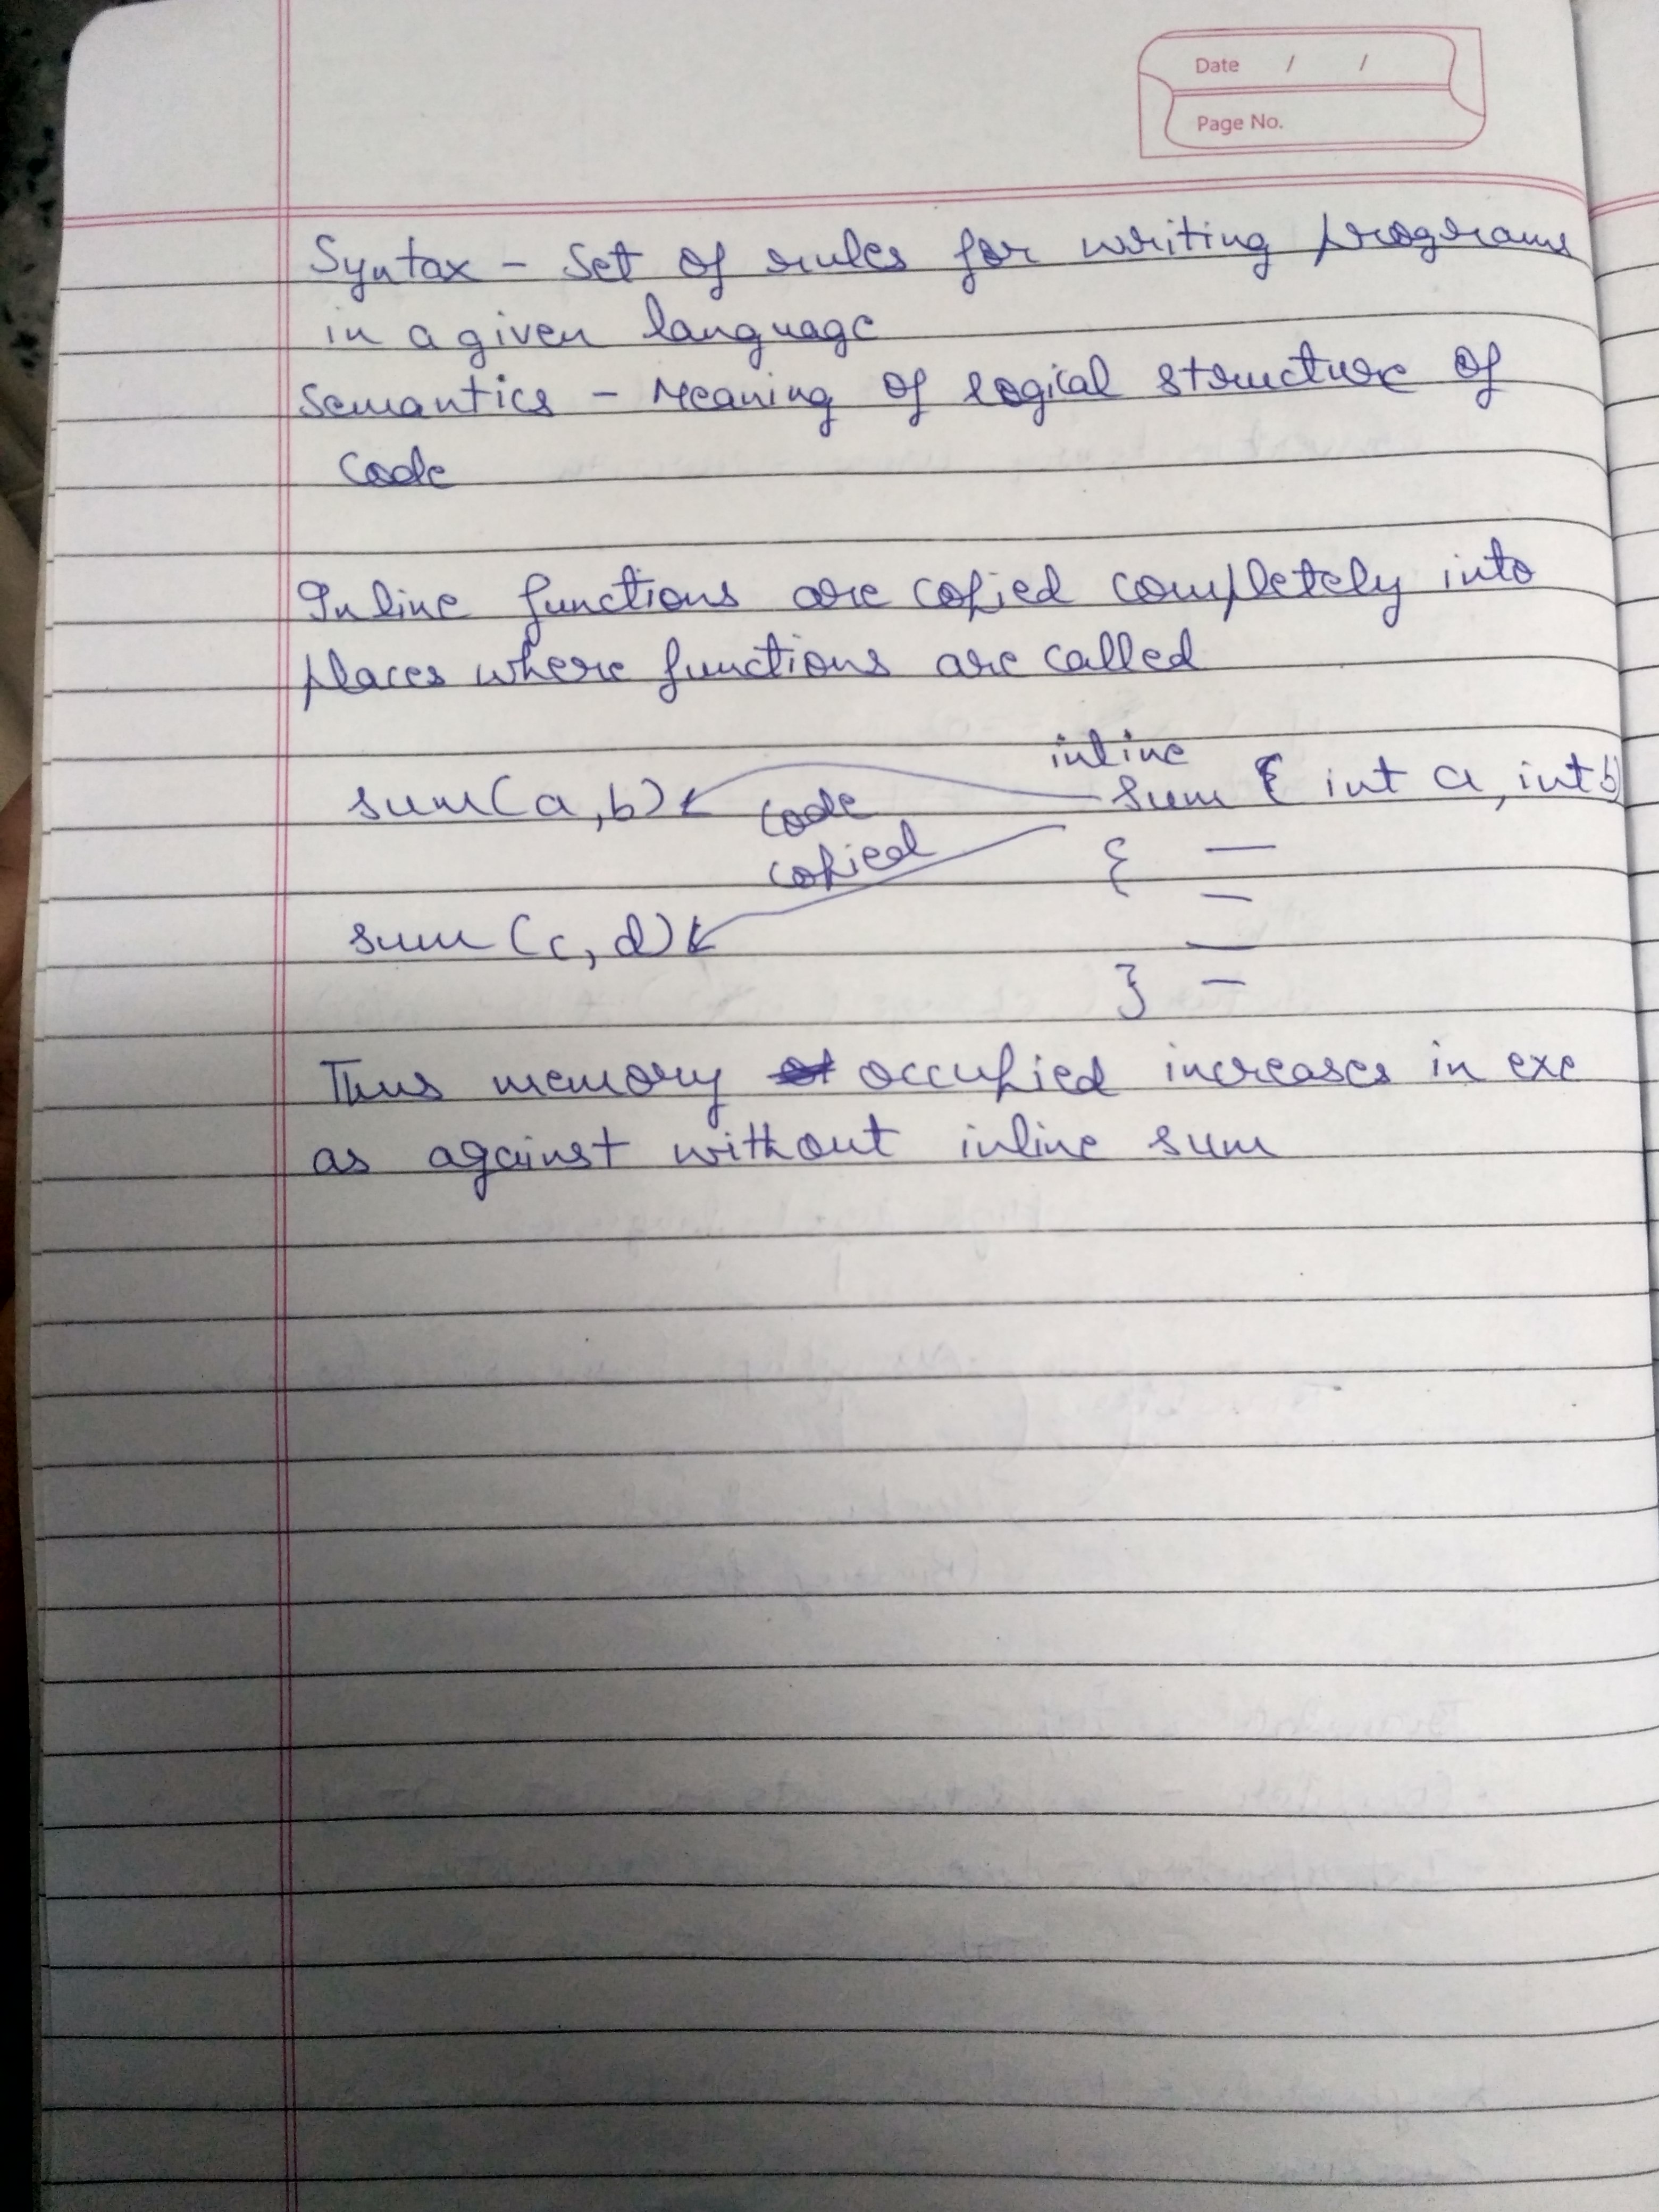 Date / /
Page No.
Syntax - Set of rules for writing programs
in a given language
Semantics - Meaning of logical structure of
code
Inline functions are copied completely into
places where functions are called
inline
sum(a,b) code sum ( int a, int b)
copied {
sum (c, d)
}
Thus memory occupied increases in exe
as against without inline sum